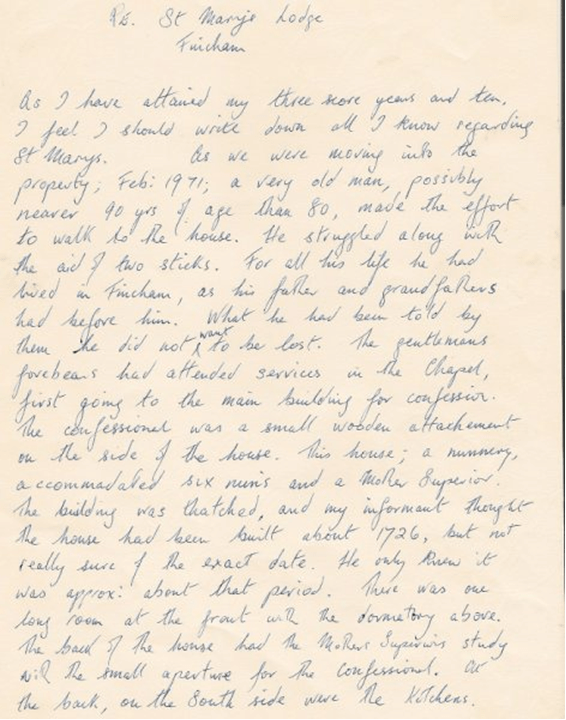 RE. St Marys Lodge
Fincham
As I have attained my three score years and ten,
I feel I should write down all I know regarding
St Marys. As we were moving into the
property; Feb: 1971; a very old man, possibly
nearer 90 yrs of age than 80, made the effort
to walk to the house. He struggled along with
the aid of two sticks. For all his life he had
lived in Fincham, as his father and grandfathers
had before him. What he had been told by
them he did not want to be lost. The gentlemans
forebears had attended services in the Chapel,
first going to the main building for confession.
The confessional was a small wooden attachement
on the side of the house. This house; a nunnery,
accommadated six nuns and a Mother Superior.
The building was thatched, and my informant thought
the house had been built about 1726, but not
really sure of the exact date. He only knew it
was approx: about that period. There was one
long room at the front with the dormatory above.
The back of the house had the Mothers Superiors study
with the small aperture for the confessional. At
the back, on the South side were the Kitchens.